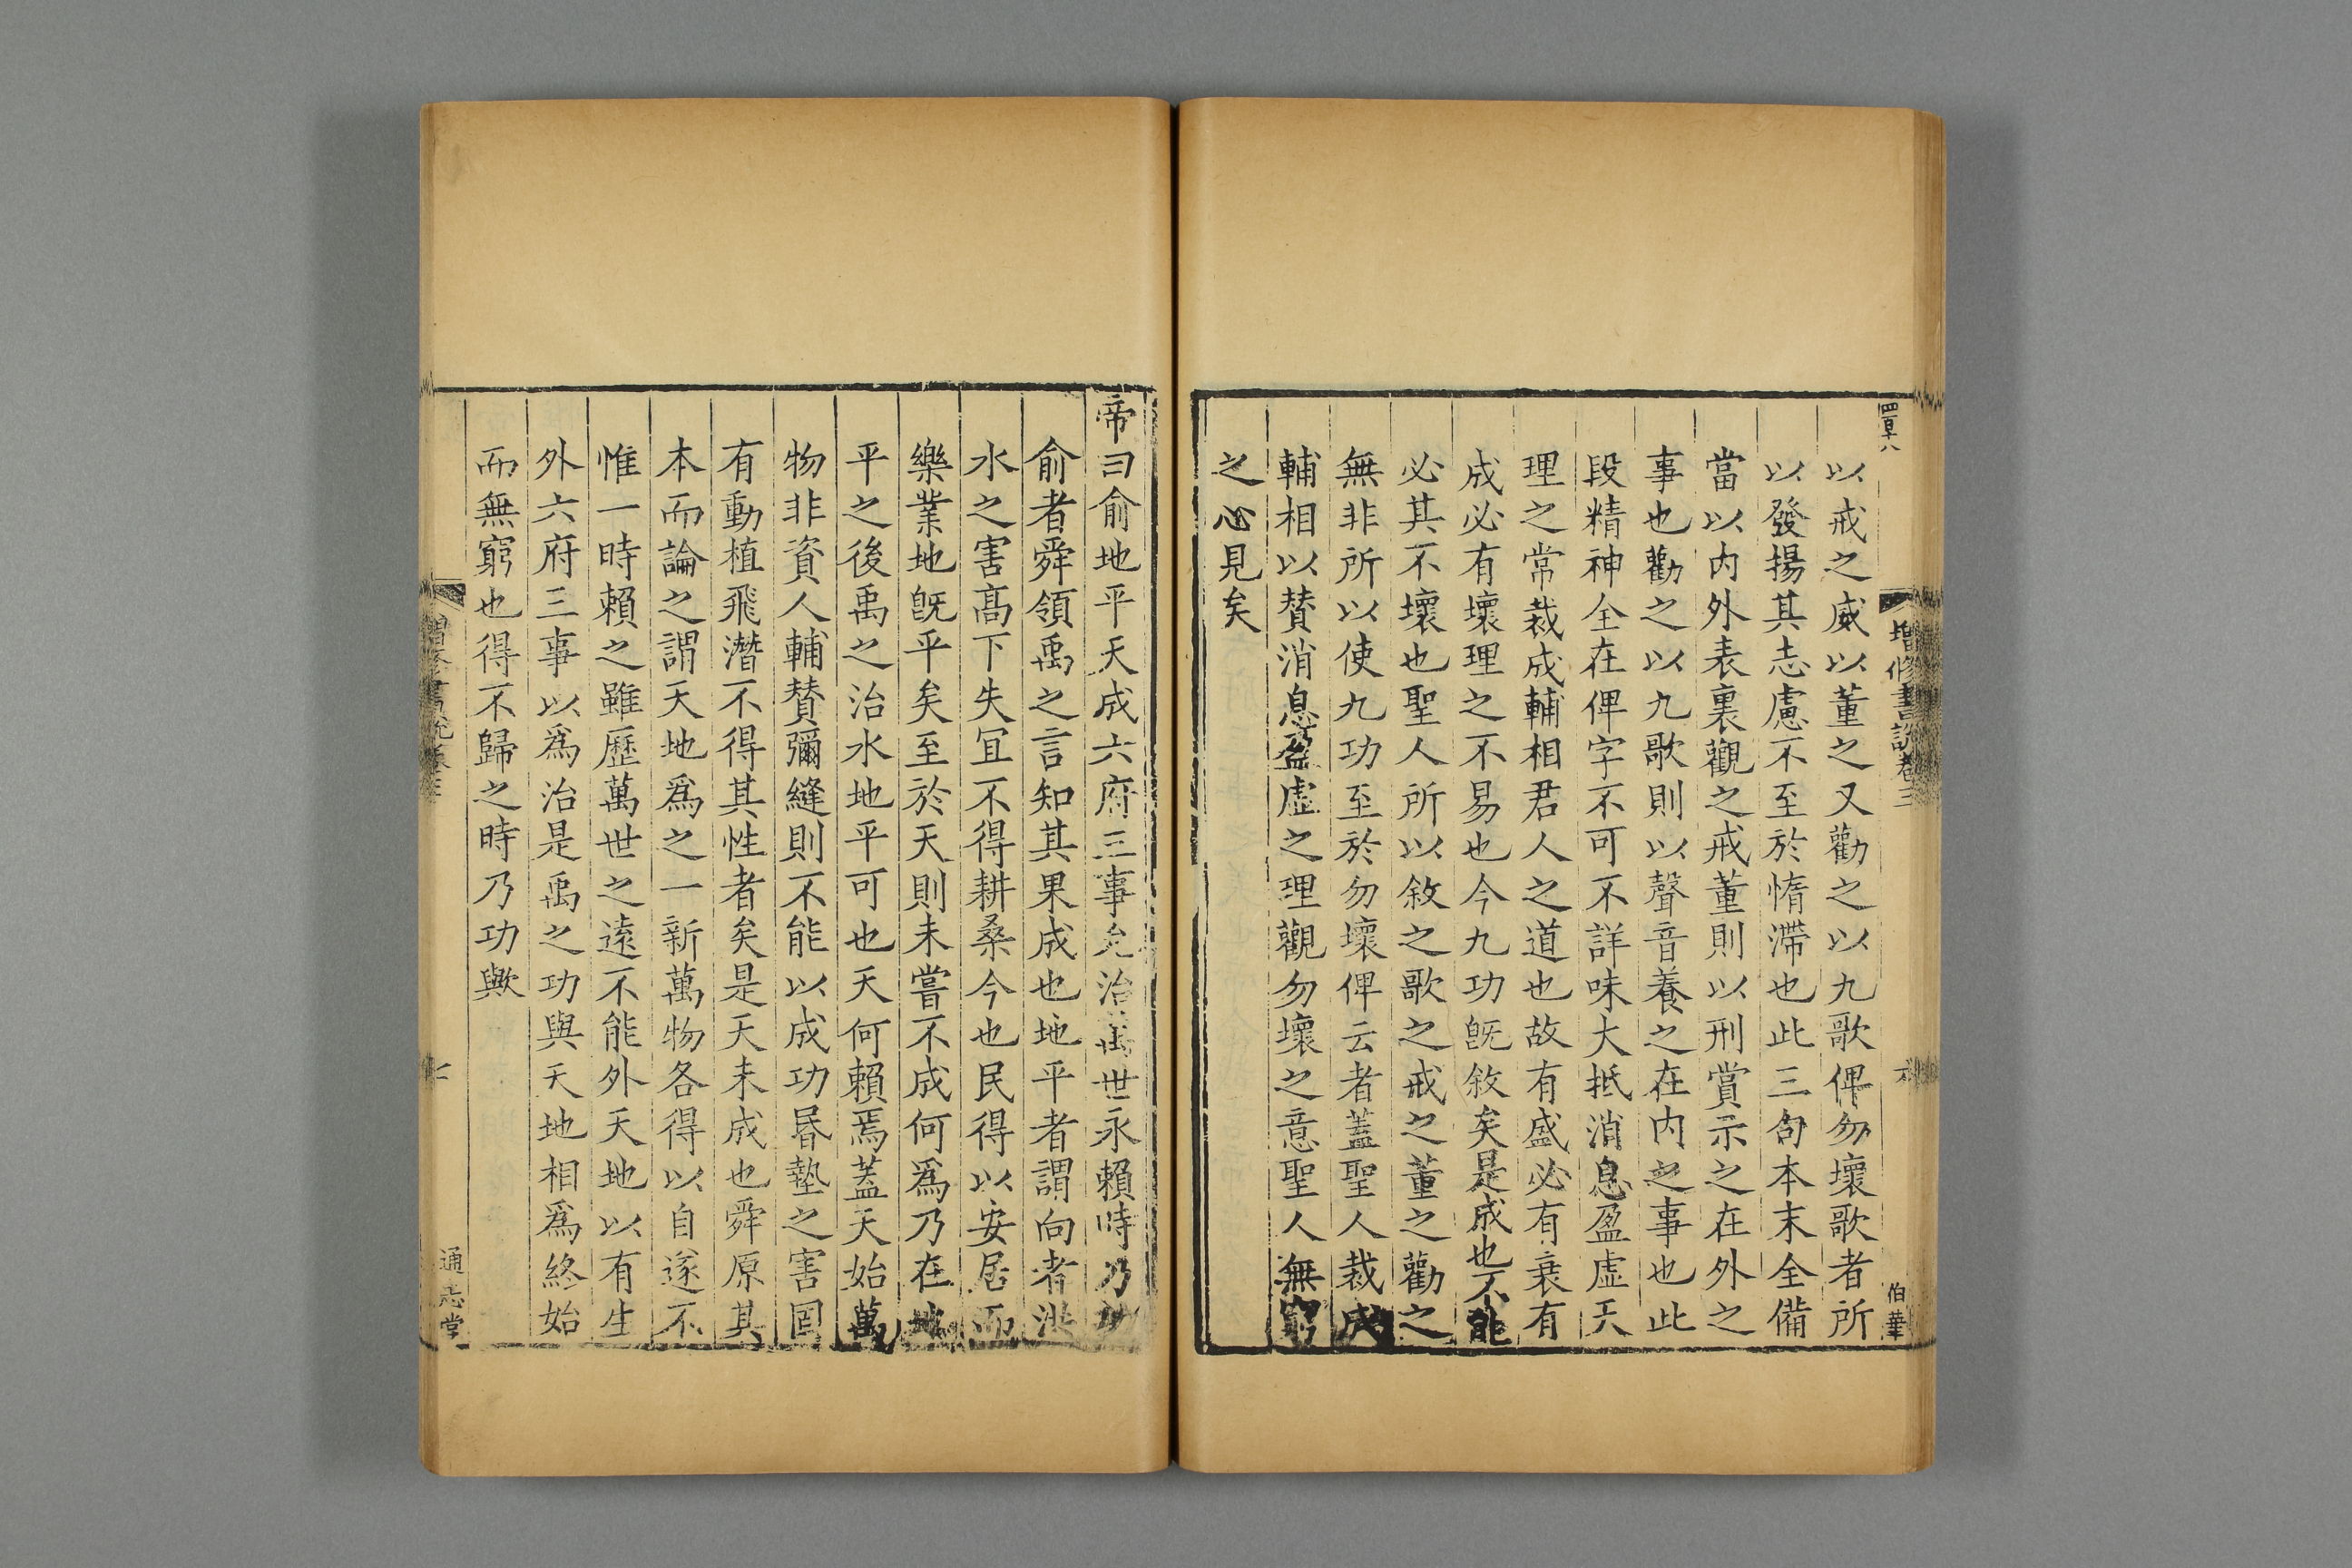 四百十八
增修書說卷三
六
伯華
以戒之威以董之又勸之以九歌俾勿壞歌者所
以發揚其志慮不至於惰滯也此三句本末全備
當以内外表裏觀之戒董則以刑賞示之在外之
事也勸之以九歌則以聲音養之在内之事也此
段精神全在俾字不可不詳味大抵消息盈虛天
理之常裁成輔相君人之道也故有盛必有衰有
成必有壞理之不易也今九功旣敘矣是成也不能
必其不壞也聖人所以敘之歌之戒之董之勸之
無非所以使九功至於勿壞俾云者蓋聖人裁成
輔相以賛消息盈虛之理觀勿壞之意聖人無窮
之心見矣
帝曰俞地平天成六府三事允治萬世永賴時乃功
俞者舜領禹之言知其果成也地平者謂向者洪
水之害髙下失冝不得耕桑今也民得以安居而
樂業地旣平矣至於天則未嘗不成何爲乃在地
平之後禹之治水地平可也天何賴焉蓋天始萬
物非資人輔賛彌縫則不能以成功昬墊之害固
有動植飛潛不得其性者矣是天未成也舜原其
本而論之謂天地爲之一新萬物各得以自遂不
惟一時賴之雖歷萬世之遠不能外天地以有生
外六府三事以爲治是禹之功與天地相爲終始
而無窮也得不歸之時乃功歟
七
通志堂